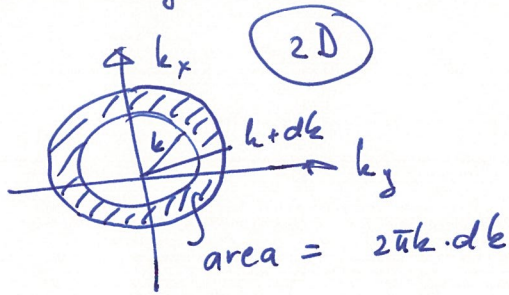 2D
kx
k
k+dk
ky
area = 2πk·dk